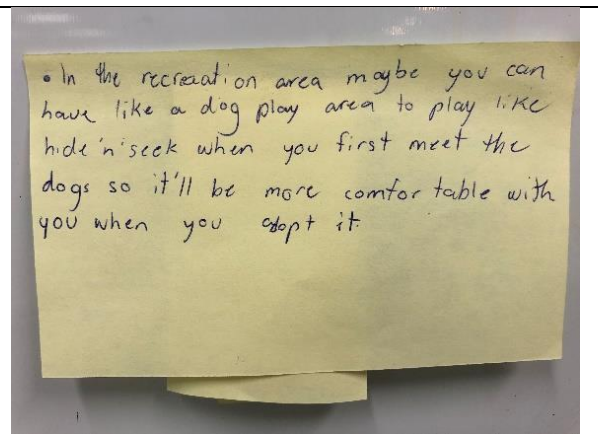 • In the recreaation area maybe you can
have like a dog play area to play like
hide 'n' seek when you first meet the
dogs so it'll be more comfortable with
you when you adopt it.